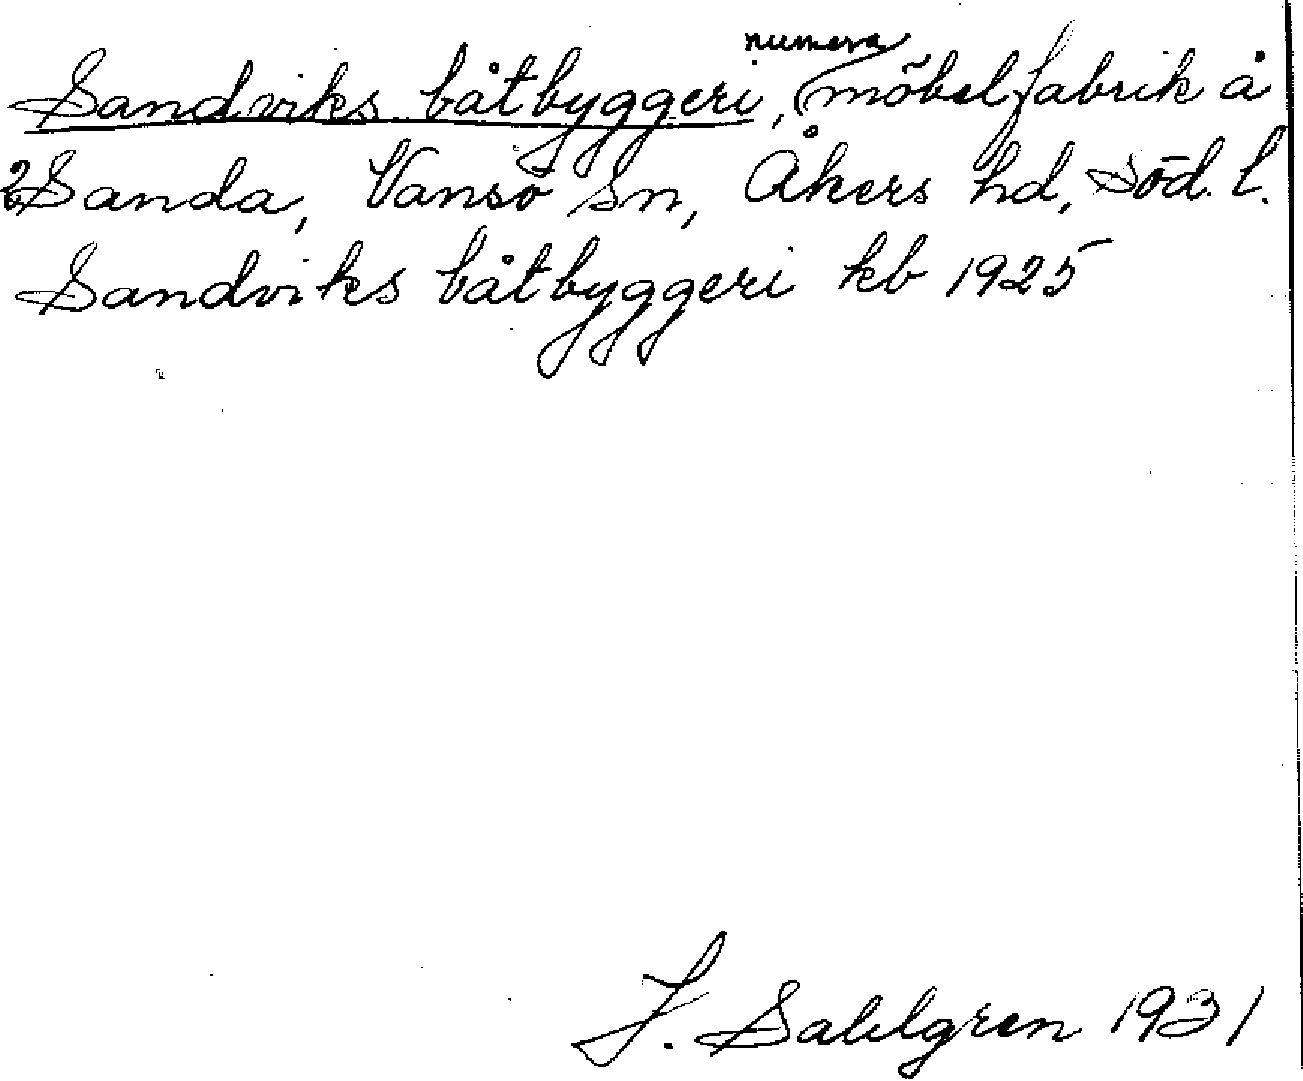 Sandviks båtbyggeri, numera möbelfabrik å
2 Sanda, Vansö sn, Åkers hd, Söd. l.
Sandviks båtbyggeri kb 1925
J. Sahlgren 1931